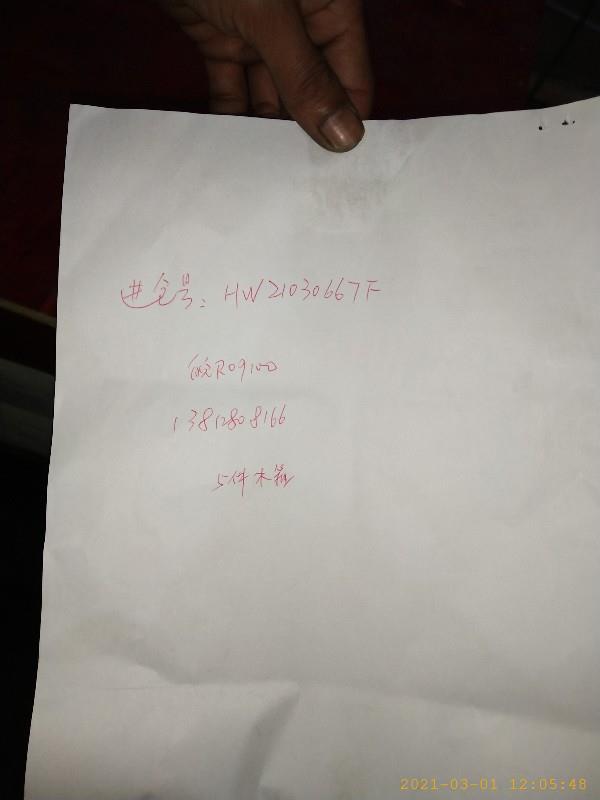 进仓号：HW21030667F
皖R09100
13812808166
5件木箱
2021-03-01 12:05:48